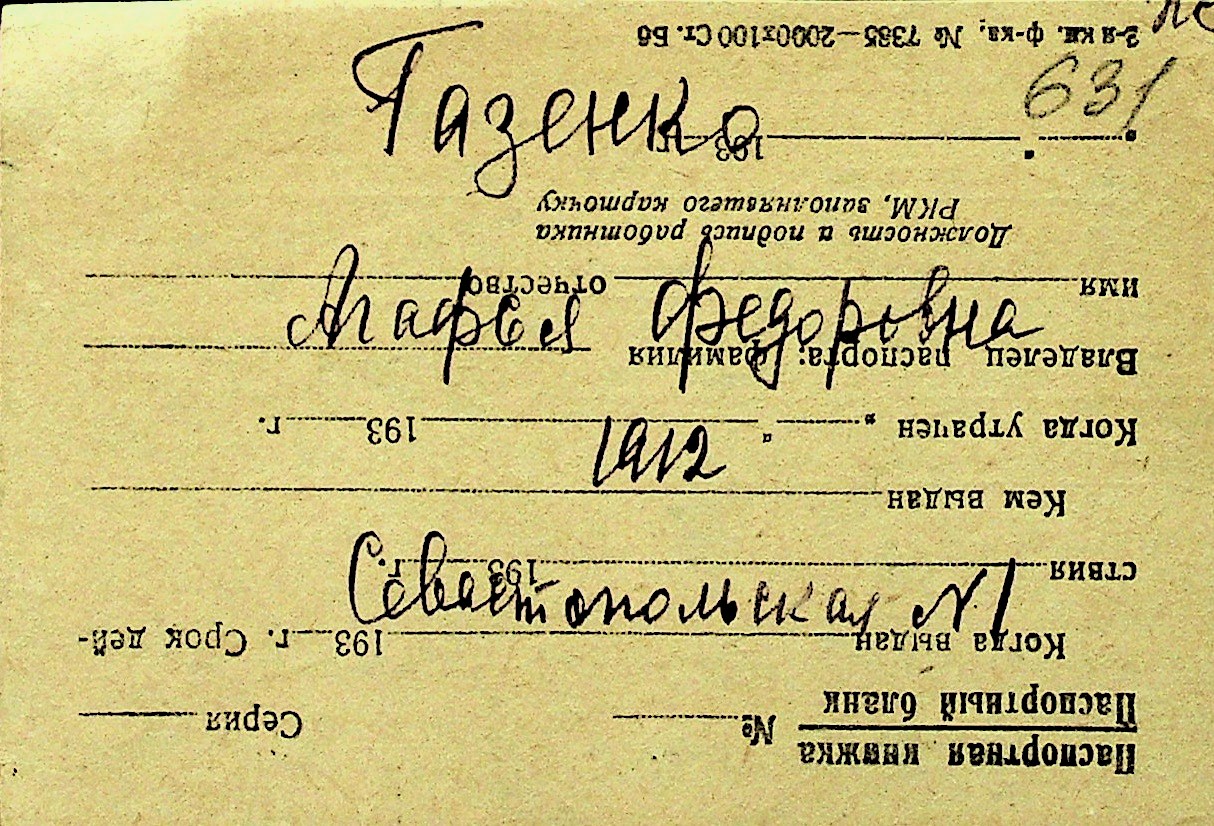 631
Газенко
Агафья Федоровна
1912
Севастопольская N. 1
Паспортная книжка
Паспортный бланк № Серия
Когда выдан 193 г. Срок дей-
ствия 193 г.
Кем выдан
Когда утрачен „ “ 193 г.
Владелец паспорта: фамилия
имя отчество
Должность и подпись работника
РКМ, заполнявшего карточку
„ “ 193 г.
2-я кн. ф-ка, № 7385—2000х100 Ст. Бб